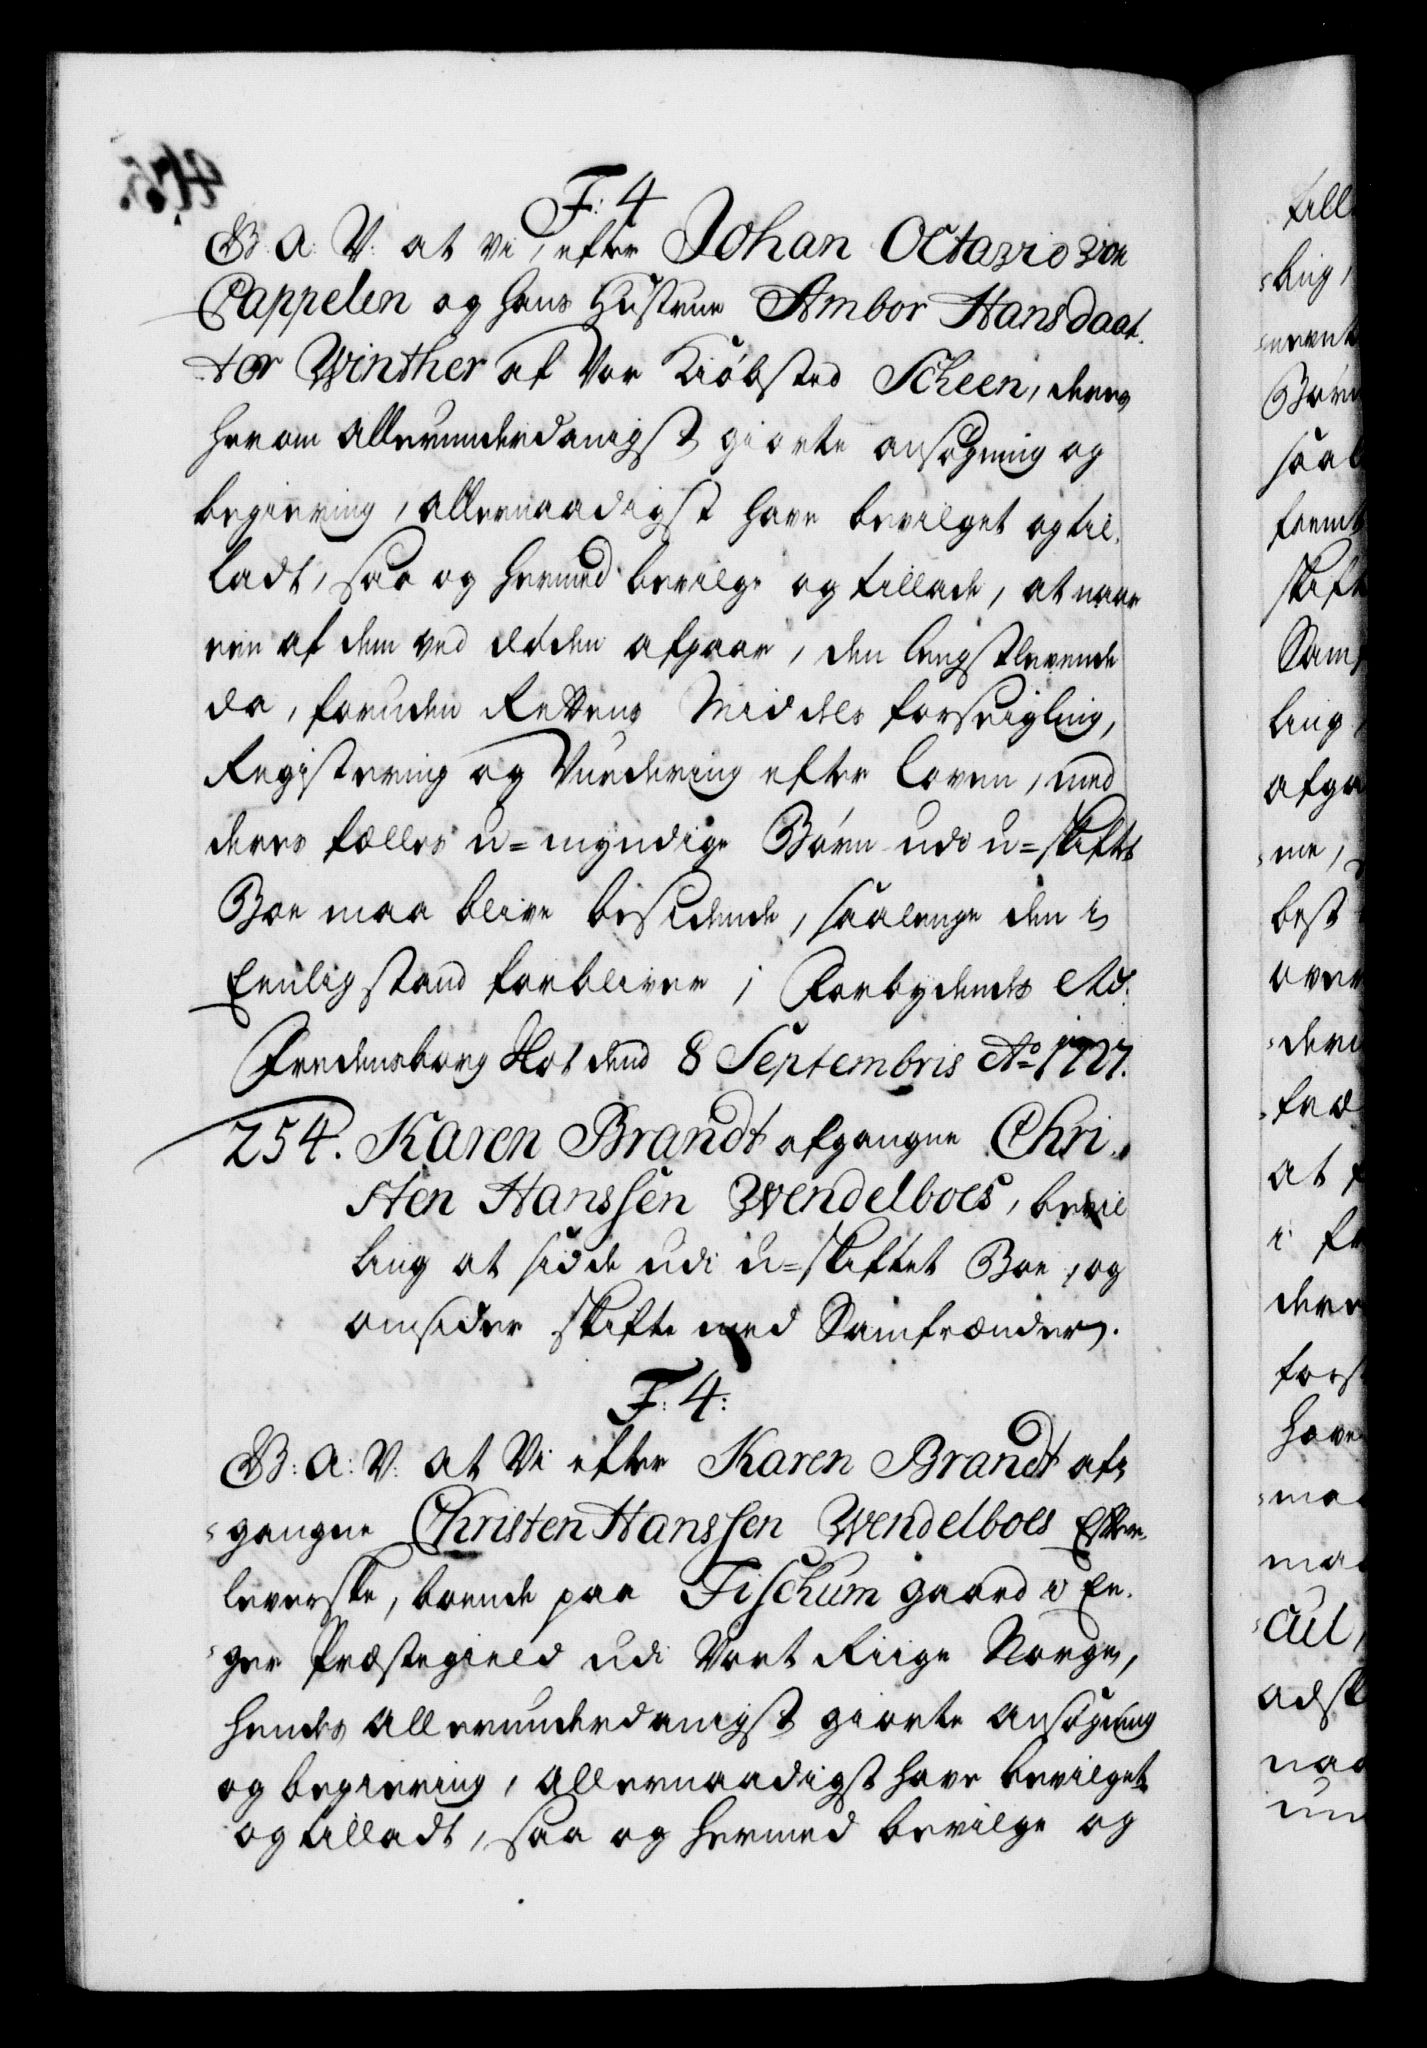 F: 4
G: A: V: at Vi, efter Johan Octavio von
Cappelen og hans Hustrue Ambor Hansdaat-
ter Winther af Vor Kiøbsted Scheen, deres
herom allerunderdanigst giorte ansøgning og
begiering, allernaadigst have bevilget og til-
ladt, saa og hermed bevilge og tillade, at naar
een af dem ved døden afgaar, den lengstlevende
da, foruden Rettens Middels forseigling,
Registering og Vurdering efter Loven, med
deres fælles u=myndige Børn udi u=skiftet
Boe maa blive besidende, saalenge den i
Eenlig stand forbliver; Forbydendes etc:
Fredensborg Slot dend 8 Septembris Ao 1727.
254. Karen Brandt afgangne Chri-
sten Hanssen Wendelboes, bevil
ling at sidde udi u=skiftet Boe, og
omsider skifte med Samfrænder.
F: 4:
G: A: V: at Vi efter Karen Brandt af-
gangne Christen Hanssen Wendelboes Efter-
leverske, boende paa Fischum gaard i Eg-
ger Præstegield udi Vort Riige Norge,
hendes allerunderdanigst giorte ansøgning
og begiering, allernaadigst have bevilget
og tilladt, saa og hermed bevilge og